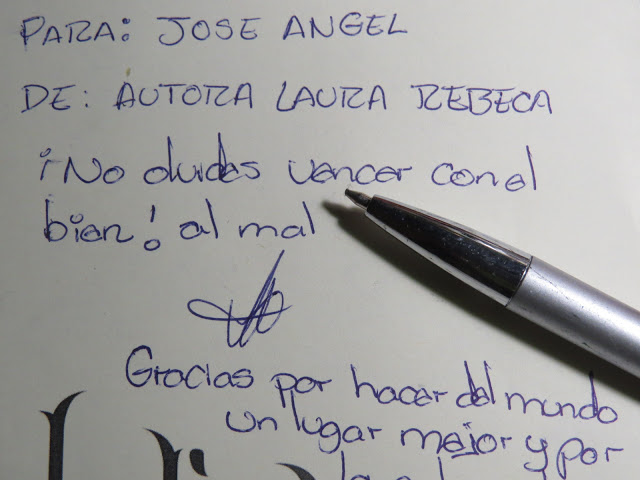 PARA: JOSE ANGEL
DE: AUTORA LAURA REBECA
¡No olvides vencer con el
bien! al mal
Gracias por hacer del mundo
un lugar mejor y por